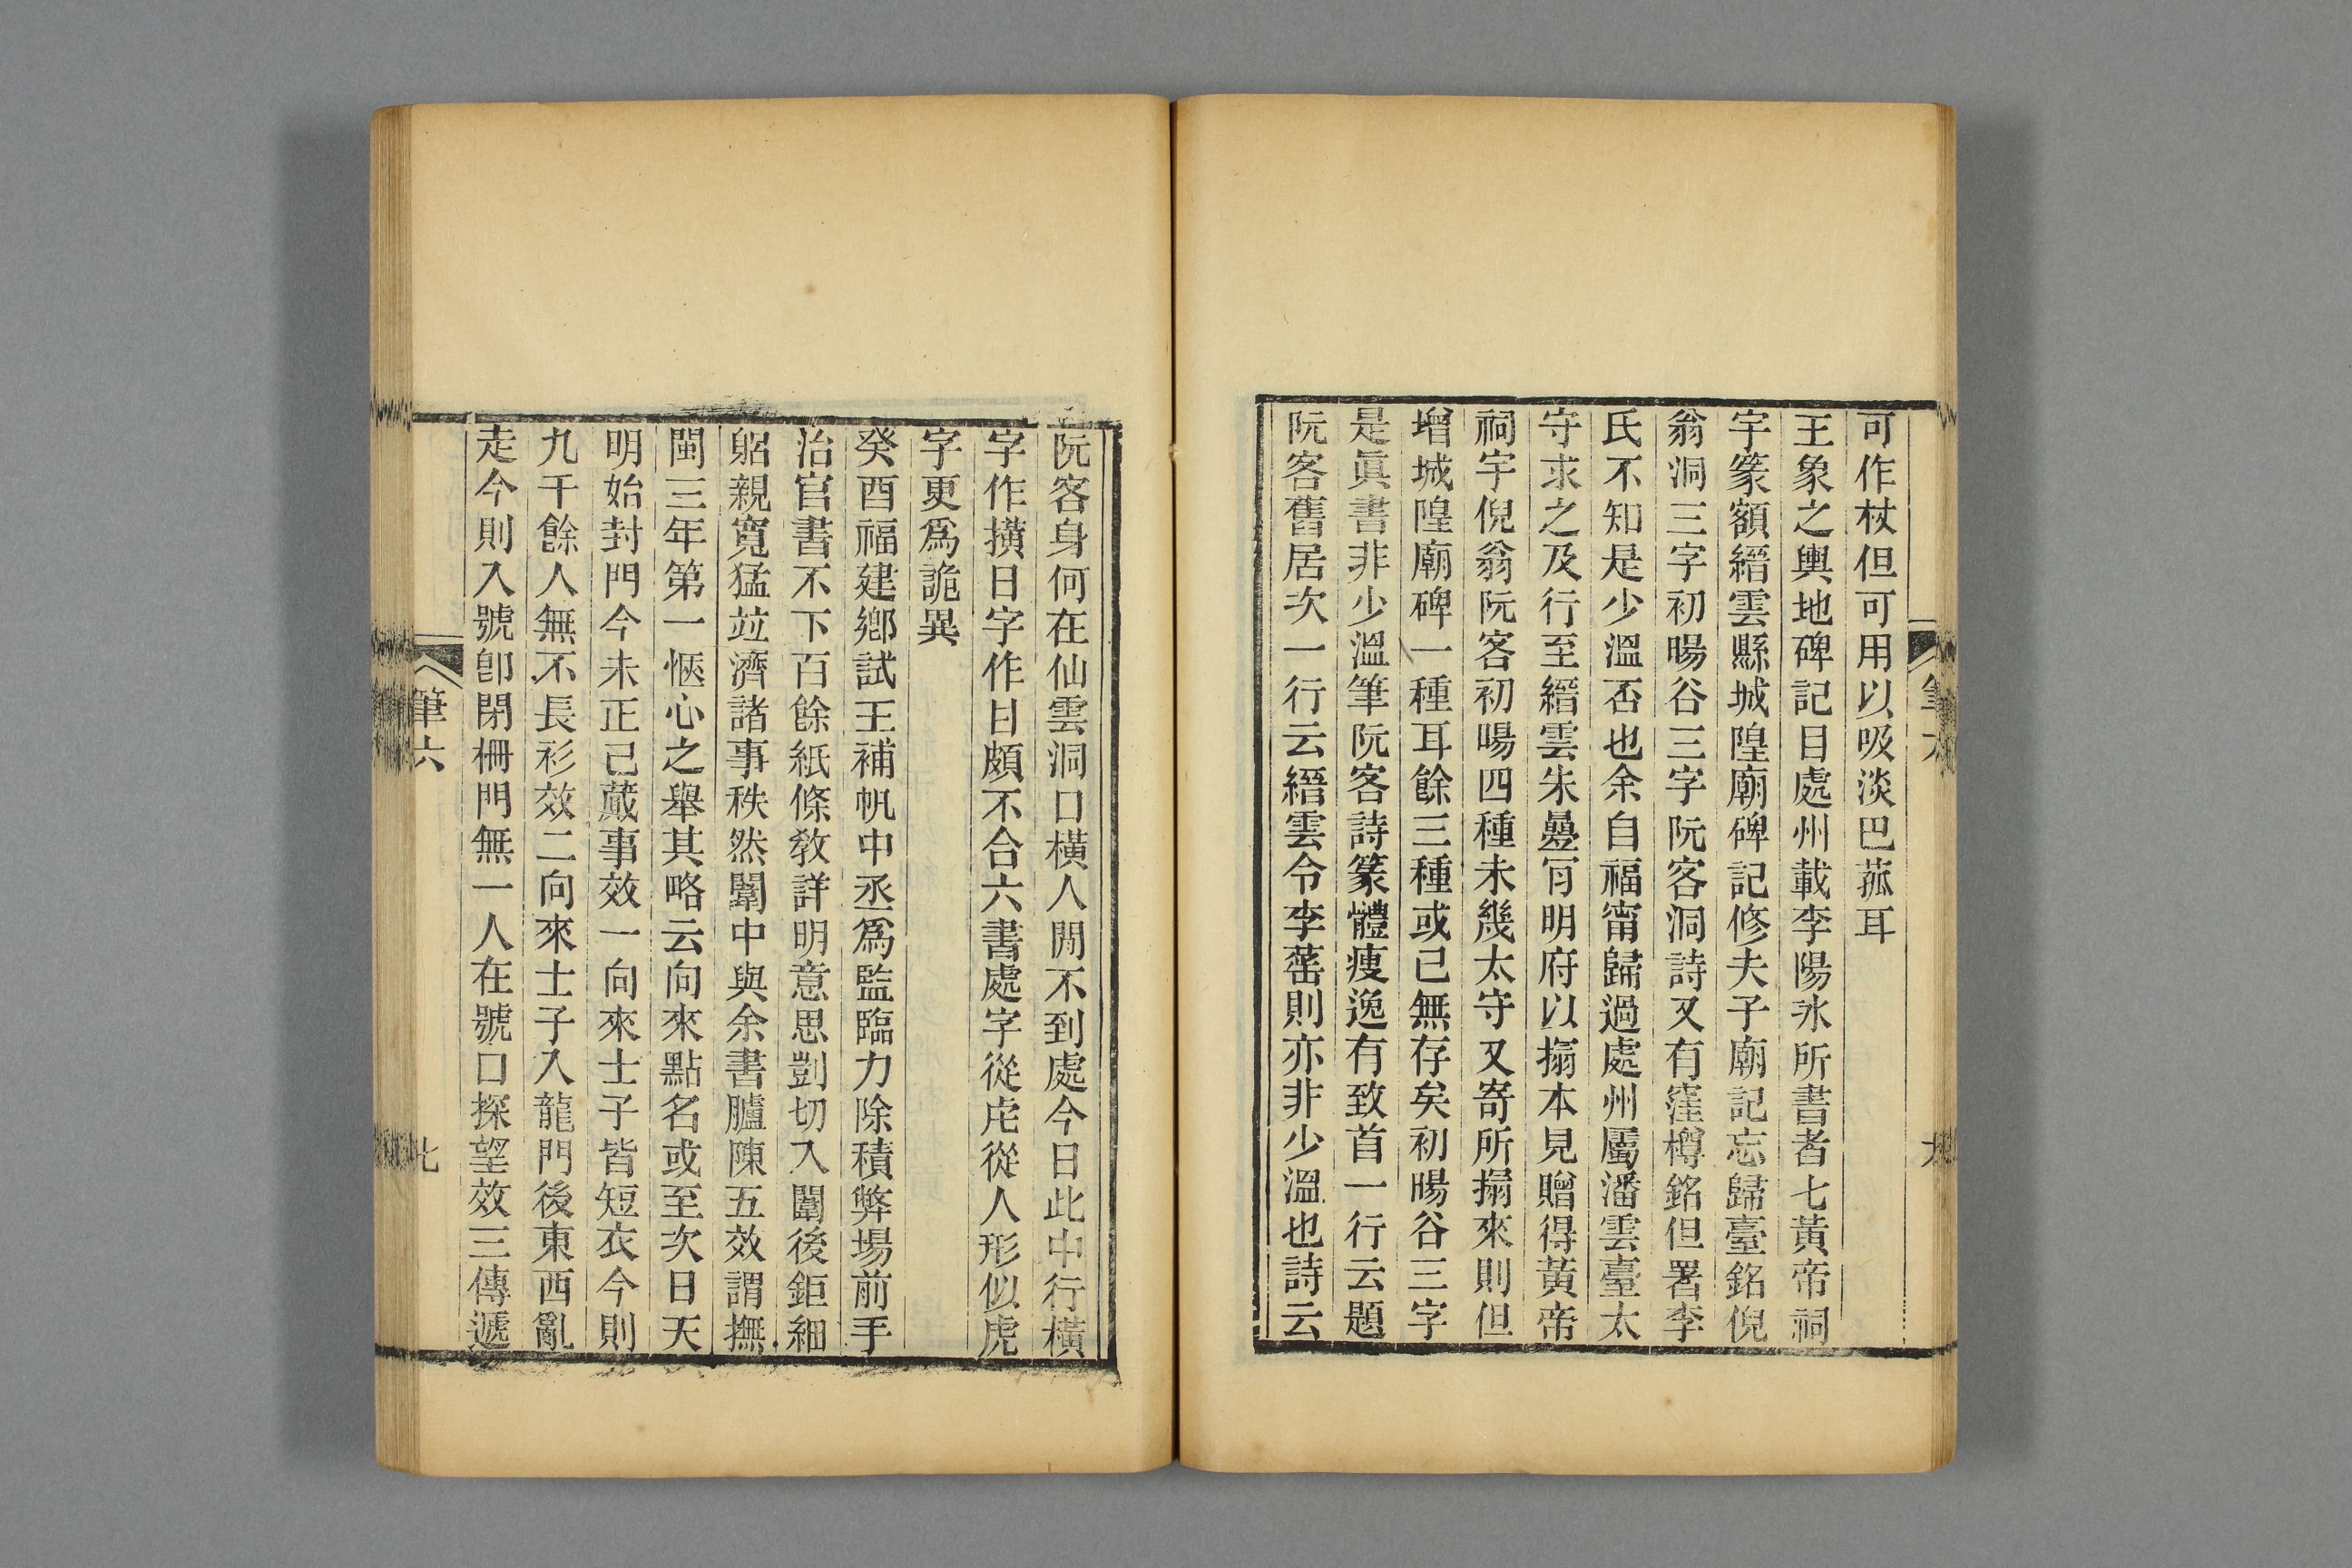 可作杖但可用以吸淡巴菰耳
王象之輿地碑記目處州載李陽氷所書者七黃帝祠
宇篆額縉雲縣城隍廟碑記修夫子廟記忘歸臺銘倪
翁洞三字初暘谷三字阮客洞詩又有窪樽銘但署李
氏不知是少溫否也余自福甯歸過處州屬潘雲臺太
守求之及行至縉雲朱曑冐明府以搨本見贈得黃帝
祠宇倪翁阮客初暘四種未幾太守又寄所搨來則但
增城隍廟碑一種耳餘三種或已無存矣初暘谷三字
是眞書非少溫筆阮客詩篆體瘦逸有致首一行云題
阮客舊居次一行云縉雲令李蕾則亦非少溫也詩云
阮客身何在仙雲洞口橫人閒不到處今日此中行橫
字作撗日字作曰頗不合六書處字從虍從人形似虎
字更爲詭異
癸酉福建鄉試王補帆中丞爲監臨力除積弊場前手
治官書不下百餘紙條敎詳明意思剴切入闈後鉅細
躬親寬猛竝濟諸事秩然闈中與余書臚陳五效謂撫
閩三年第一愜心之舉其略云向來點名或至次日天
明始封門今未正已蕆事效一向來士子皆短衣今則
九千餘人無不長衫效二向來士子入龍門後東西亂
走今則入號卽閉柵門無一人在號口探望效三傳遞
筆六